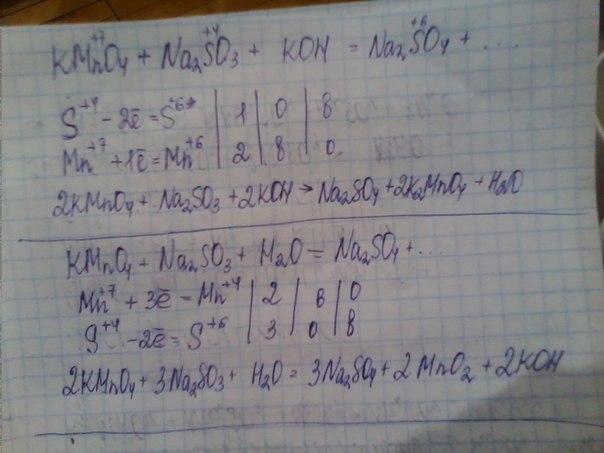 KMn⁺⁷O₄ + Na₂S⁺⁴O₃ + KOH = Na₂S⁺⁶O₄ + ....
S⁺⁴ - 2ē = S⁺⁶ | 1 | 0 | в
Mn⁺⁷ + 1ē = Mn⁺⁶ | 2 | в | 0
2KMnO₄ + Na₂SO₃ + 2KOH → Na₂SO₄ + 2K₂MnO₄ + H₂O
KMnO₄ + Na₂SO₃ + H₂O = Na₂SO₄ + ...
Mn⁺⁷ + 3ē = Mn⁺⁴ | 2 | в | 0
S⁺⁴ - 2ē = S⁺⁶ | 3 | 0 | в
2KMnO₄ + 3Na₂SO₃ + H₂O = 3Na₂SO₄ + 2MnO₂ + 2KOH